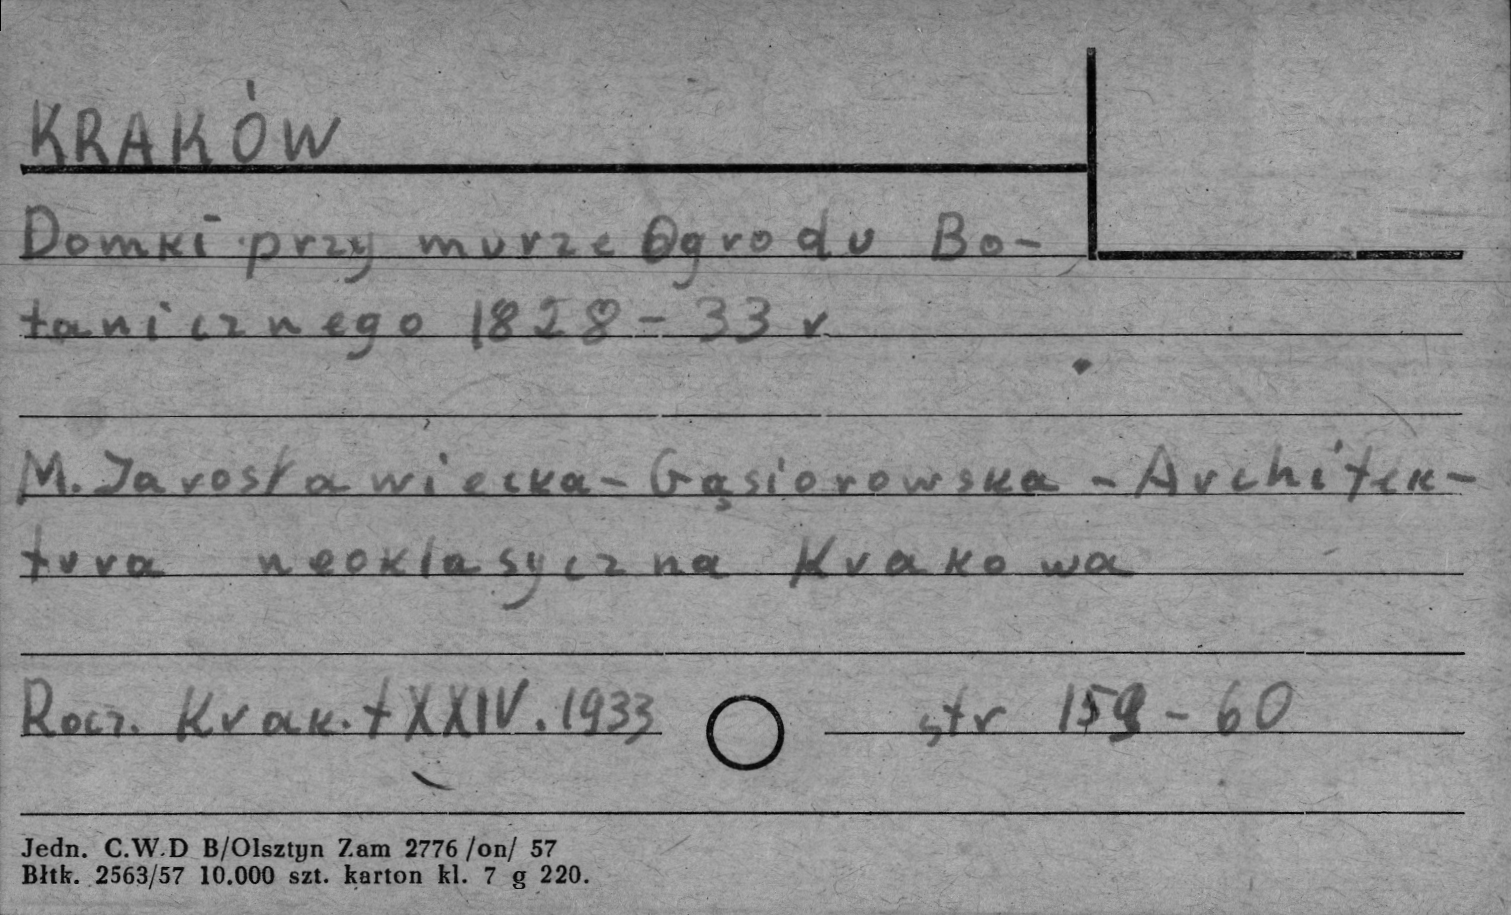 KRAKÓW
Domki przy murze Ogrodu Bo-
tanicznego 1828-33 r
M. Jarosławiecka-Gąsiorowska - Architek-
tura neoklasyczna Krakowa
Rocz. Krak. t XXIV. 1933 str 159-60
Jedn. C.W.D B/Olsztyn Zam 2776 /on/ 57
Błtk. 2563/57 10.000 szt. karton kl. 7 g 220.